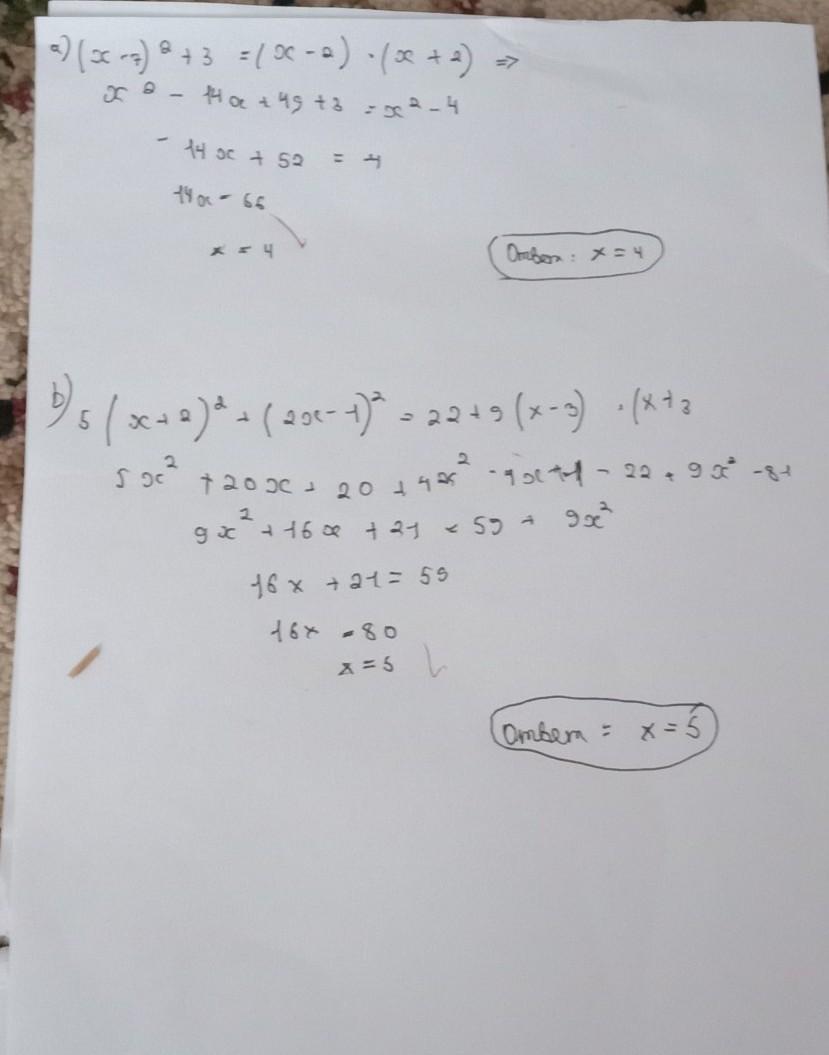 a) (x-7)² + 3 = (x-2) · (x+2) ⇒
x² - 14x + 49 + 3 = x² - 4
- 14x + 52 = 4
14x = 56
x = 4
Ответ: x = 4
b) 5(x+2)² + (2x-1)² = 22 + 9(x-3) · (x+3
5x² + 20x + 20 + 4x² - 4x + 1 = 22 + 9x² - 81
9x² + 16x + 21 = 59 + 9x²
16x + 21 = 59
16x = 80
x = 5
Ответ = x = 5